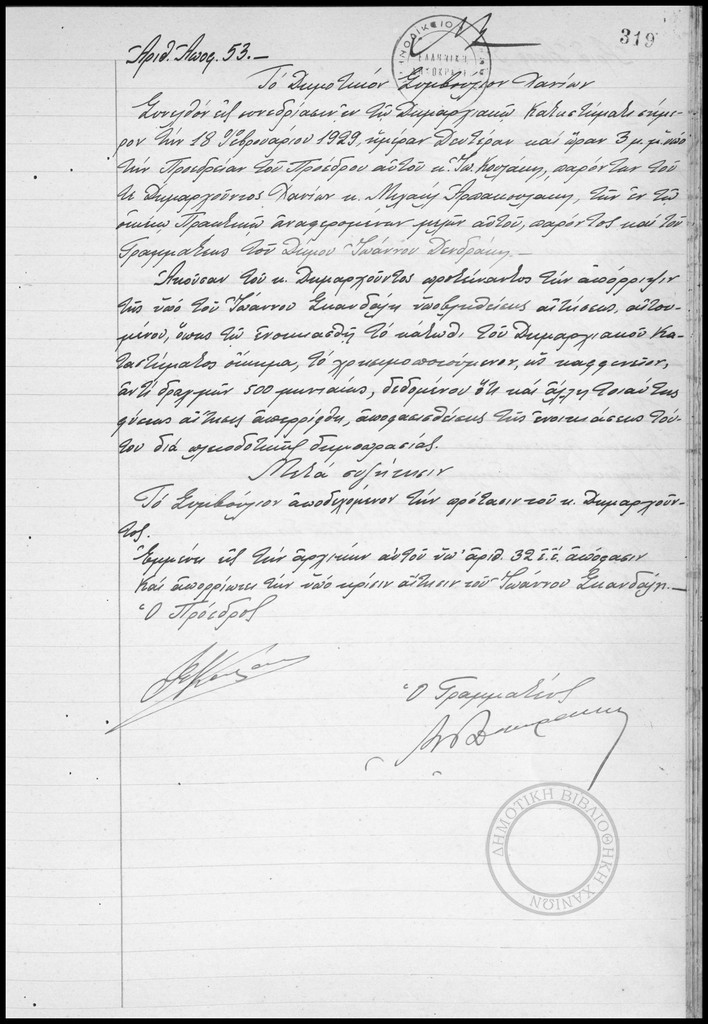 319
Ἀριθ. Ἀποφ. 53.-
Τό Δημοτικόν Συμβούλιον Χανίων
Συνελθόν εἰς συνεδρίασιν ἐν τῷ Δημαρχιακῷ Καταστήματι σήμε-
ρον τήν 18 Φεβρουαρίου 1929, ἡμέραν Δευτέραν καί ὥραν 3 μ.μ. ὑπό
τήν Προεδρείαν τοῦ Προέδρου αὐτοῦ κ. Ἰω. Κουλάκη, παρόντων τοῦ
κ. Δημαρχοῦντος Χανίων κ. Μιχαήλ, τῶν ἐν τῷ
οἰκείῳ Πρακτικῷ ἀναφερομένων μελῶν αὐτοῦ, παρόντος καί τοῦ
Γραμματέως τοῦ Δήμου Ἰωάννου Δενδράκη.-
Ἀκοῦσαν τοῦ κ. Δημαρχοῦντος προτείναντος τήν ἀπόρριψιν
τῆς ὑπό τοῦ Ἰωάννου Σκανδάλη ὑποβληθείσης αἰτήσεως, αἰτου-
μένου, ὅπως τῷ ἐνοικιασθῇ τό κάτωθι τοῦ Δημαρχιακοῦ Κα-
ταστήματος οἴκημα, τό χρησιμοποιούμενον, ὡς καφφενεῖον,
ἀντί δραχμῶν 500 μηνιαίως, δεδομένου ὅτι καί ἄλλη τοιαύτης
φύσεως αἴτησις ἀπερρίφθη, ἀποφασισθείσης τῆς ἐνοικιάσεως τού-
του διά πλειοδοτικῆς δημοπρασίας.
Μετά συζήτησιν
Τό Συμβούλιον ἀποδεχόμενον τήν πρότασιν τοῦ κ. Δημαρχοῦν-
τος.
Ἐμμένει εἰς τήν ἀρχικήν αὐτοῦ ὑπ' ἀριθ. 32 ἀπόφασιν
καί ἀπορρίπτει τήν ὑπό κρίσιν αἴτησιν τοῦ Ἰωάννου Σκανδάλη.-
Ὁ Πρόεδρος
Ὁ Γραμματεύς
ΔΗΜΟΤΙΚΗ ΒΙΒΛΙΟΘΗΚΗ ΧΑΝΙΩΝ